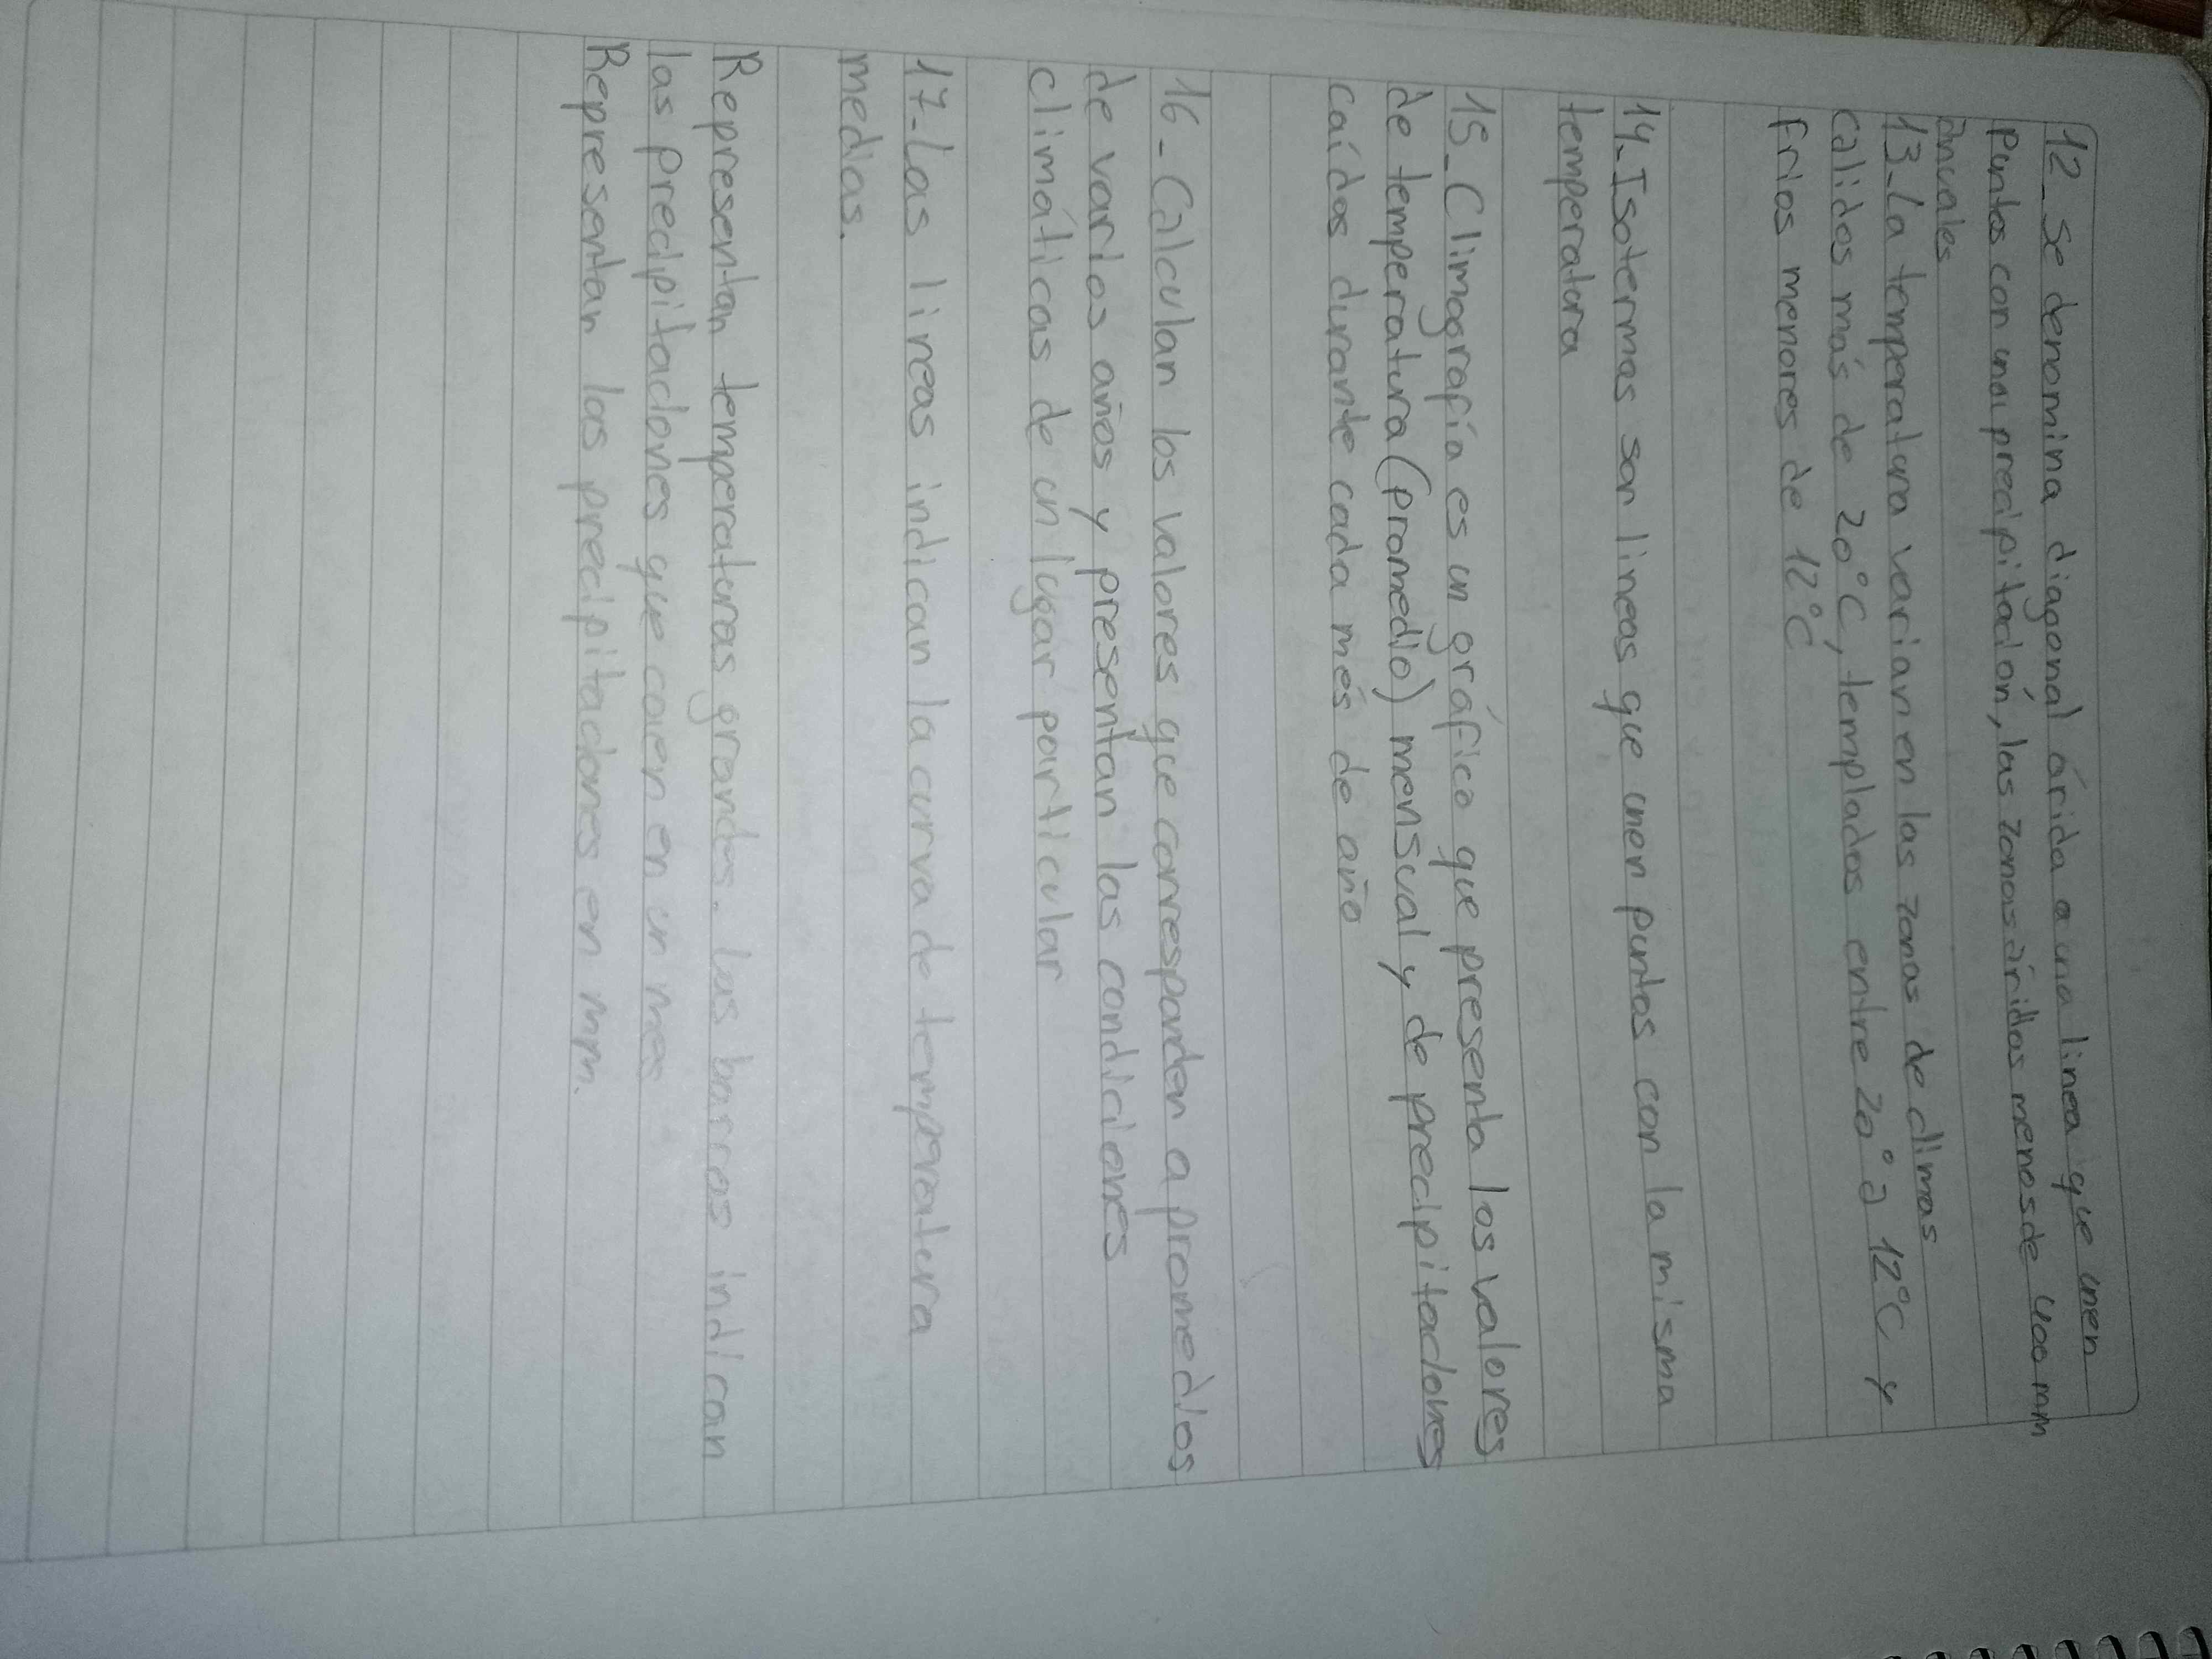 12_ se denomina diagonal árida a una linea que unen
puntos con una precipitación, las zonas áridas menos de 400 mm
anuales
13_La temperatura varian en las zonas de climas
calidos más de 20°C, templados entre 20° a 12°C y
frios menores de 12°C
14_Isotermas son lineas que unen puntos con la misma
temperatura
15_Climografía es un gráfico que presenta los valores
de temperatura (promedio) mensual y de precipitaciones
caídos durante cada més de año
16_Calculan los valores que corresponden a promedios
de varios años y presentan las condiciones
climáticas de un lugar particular
17_Las lineas indican la curva de temperatura
medias.
Representan temperaturas grandes. las barras indican
las precipitaciones que caen en un mes
Representan las precipitaciones en mm.